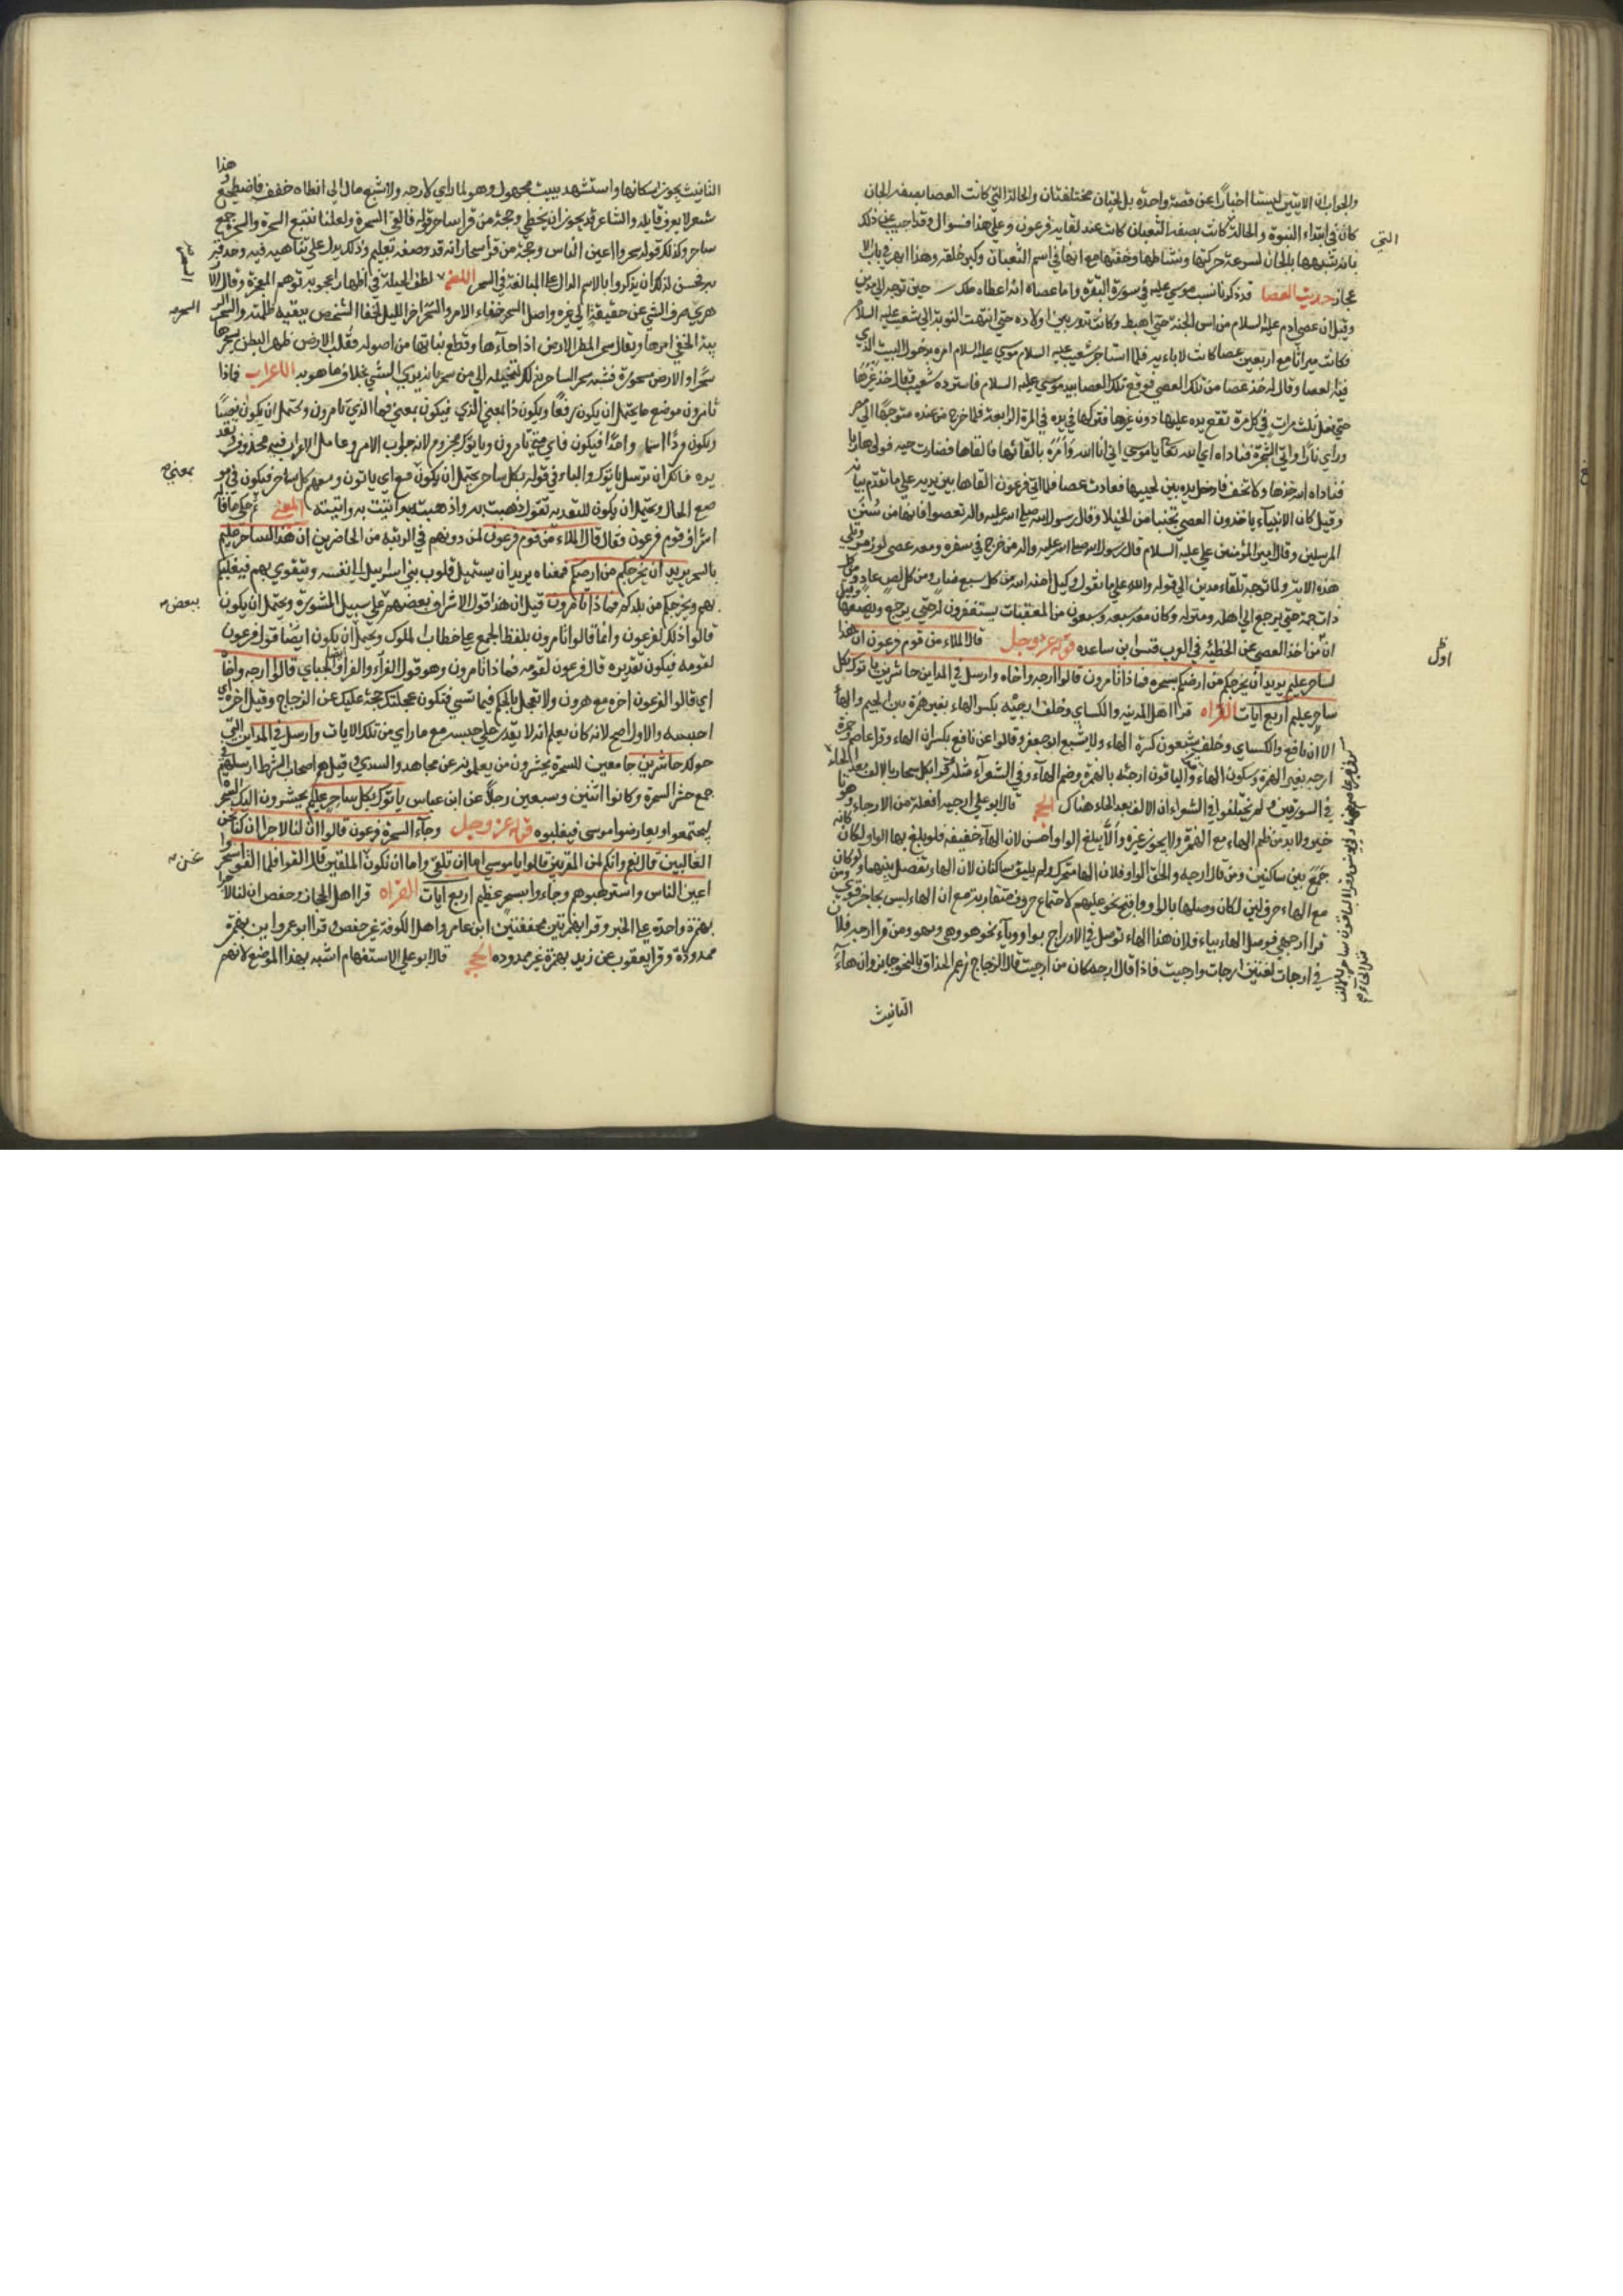 والجواب ان الايتين ليستا اخبارا عن قصة واحدة بل الحالتان مختلفتان والحالة التي كانت العصا بصفه الجان
كان في ابتداء النبوة و الحالة كانت بصفه الثعبان كانت عند لقايه فرعون وعلي هذا فسوال وقد اجيب عن ذلك
التي
بانه شبهها بالجان لسرعة حركتها ونشاطها وخفتها مع انها في اسم الثعبان وكبر خلقه وهذا ابهر في باب الا
عجاز حديث العصا قد ذكرنا نسب موسي عليه في سورة البقره واما عصاه انه اعطاه ملك حين توجه الي مدين
وقيل ان عصي ادم عليه السلام من اس الجنة حتي اهبط وكانت تدور بين اولاده حتي انتهت النوبة الي شعيب عليه السلام
فكانت ميراثا مع اربعين عصا كانت لاباءيه فلما استاجر شعيب عليه السلام موسي عليه السلام امره بدخول البيت الذي
فيه العصا وقال له خذ عصا من تلك العصي فوقع تلك العصا بيد موسي عليه السلام فاسترده شعيب وقال خذ غيرها
حتي فعل ثلث مرات في كل مرة تقع يده عليها دون غيرها فتركها في يده في المرة الرابعة فلما خرج من عنده متوجها الي مصر
وراي نارا واتي الشجرة فناداه اي الله تعالي يا موسي اني انا الله وامره بالقائها فالقاها فصارت حيه فولي هاربا
فناداه الله خذها ولا تخف فادخل يده بين لحييها فعادت عصا فلما اتي فرعون القاها بين يديه علي ما تقدم بيانه
وقيل كان الانبياء ياخذون العصي تجنبا من الخيلا وقال رسول الله صلي الله عليه واله تعصوا فانها من سنن
المرسلين وقال امير المؤمنين علي عليه السلام قال رسول الله صلي الله عليه واله من خرج في سفره ومعه عصي لوز مر وتلي
هذه الايه ولما توجه تلقاء مدين الي قوله والله علي ما نقول وكيل امنه الله من كل سبع ضار ومن كل لص عاد ومن كل
ذات حمة حتي يرجع الي اهله ومنزله وكان معه سبعه وسبعون من المعقبات يستغفرون له حتي يرجع ويضعها وقيل
ان من اخذ العصي عند الخطبة في العرب قس ابن ساعده قوله عز وجل قال الملاء من قوم فرعون ان هذا
اول
لساحر عليم يريد ان يخرجكم من ارضكم بسحره فماذا تامرون قالوا ارجه واخاه وارسل في المداين حاشرين ياتوك بكل
ساحر عليم اربع ايات القراه قرا اهل المدينه والكساي وخلف ارجيه بكسر الهاء بغير همزة بين الجيم والهاء
الا ان نافع والكساي وخلف يشبعون كسرة الهاء ولا يشبع ابو جعفر وقالوا عن نافع بكسر ان الهاء وقرا عاصم وحمزة
ارجه بغير الهمزة وسكون الهاء والباقون ارجئه بالهمزة وضم الهاء وفي الشعراء مثله قرا بكل سحار بالالف بعد الحاء
في السورتين ولم يختلفوا في الشعراء ان الالف بعد الحاء هناك الحجة قال ابو علي ارجيه افعله من الارجاء وهو تا
خير ولا بد من ظم الهاء مع الهمزة ولا يجوز غيره والا يبلغ الواو احسن لان الهاء خفيفه فلو بلغ بها الواو لكان كانه
جمع بين ساكنين ومن قال ارجهو والحق الواو فلان الها متحرك ولم يلتق ساكنان لان الهاء تفصل بينهما ولو كان
مع الهاء حرف لين لكان وصلها بالواو واقبح نحو عليهم لاجتماع حروف متقاربة مع ان الهاء ليس بحاجز قوي ومن
قرا ارجهي فوصل الهاء بياء فلان هذا الهاء توصل في الادراج بواو وياء نحو بهو وهي وبهو ومن قرا ارجه فلان
في ارجات لغتين ارجات وارجيت فاذا قال ارجه كان من ارجيت قال الزجاج زعم الحذاق بالنحو جايز وان هاء
التانيث
هذا
التانيث يجوز اسكانها واستشهد ببيت مجهول وهو لما راي لا دعه ولا شبع مال الي ارطاه حقف فاضطجع
شعر لا يعرف قايله والشاعر قد يجوز ان يخطي وحجة من قرا ساحر قوله فالقي السحرة ولعلنا نتبع السحرة والسحرة جمع
ساحر وكذلك قوله سحروا اعين الناس وحجة من قرا سحار انه قد وصفه بعليم وذلك يدل علي تناهيه فيه وحذقه
به فحسن لذلك ان يذكروا بالاسم الدال علي المبالغة في السحر اللغة لطف الحيلة في اظهار اعجوبة توهم المعجزة وقال الا
السحر
زهري صرف الشي عن حقيقته الي غيره واصل السحر خفاء الامر والسحر اخر الليل لخفا الشخص ببقيه ظلمته والسحر الر
ئة لخفي امرها ويقال سحر المطر الارض اذا جاءها وقطع نباتها من اصوله فقلب الارض ظهر البطن سحرها
سحرا والارض مسحورة فشبه سحر الساحر بذلك لتخيله الي من سحره انه يري الشي بخلاف ما هو به الاعراب فماذا
تامرون موضع ما يحتمل ان يكون رفعا ويكون ذا بمعني الذي فيكون بمعني فما الذي تامرون ويحتمل ان يكون نصبا
ويكون وذا اسما واحدا فيكون فاي شي تامرون وياتوك مجزوم لانه جواب الامر وعامل الاعراب فيه محذوف وتقد
يره فانك ان ترسل ياتوك والباء في قوله بكل ساحر يحتمل ان يكون مع اي ياتون ومعهم كل ساحر فيكون في مو
بمعني
ضع الحال ويحتمل ان يكون للتعديه تقول ذهبت به واذهبته واتيت به واتيته المعني ثم حكي ما قال
اشراف قوم فرعون فقال قال الملاء من قوم فرعون لمن دونهم في الرتبة من الحاضرين ان هذا لساحر عليم
بالسحر يريد ان يخرجكم من ارضكم معناه يريد ان يستميل قلوب بني اسراييل الي نفسه ويتقوي بهم فيغلبكم
بهم ويخرجكم من بلدكم فماذا تامرون قيل ان هذا قول الاشراف بعضهم علي سبيل المشورة ويحتمل ان يكون
لبعض
قالوا ذلك لفرعون وانما قالوا تامرون بلفظ الجمع علي خطاب الملوك ويحتمل ان يكون ايضا قول فرعون
لقومه فيكون تقديره قال فرعون لقومه فماذا تامرون وهو قول الفراء والجباي قالوا ارجه واخاه
اي قالوا لفرعون اخره مع هرون ولا تعجل بالحكم فيهما بشي فتكون عجلتك حجة عليك عن الزجاج وقيل اخره اي
احبسه والاول اصح لانه كان يعلم انه لا يقدر علي حبسه مع ما راي من تلك الايات وارسل في المداين التي
حولك حاشرين جامعين للسحرة يحشرون من يعلمونه عن مجاهد والسدي وقيل هم اصحاب الشرط ارسلهم في
جمع حشر السحرة وكانوا اثنين وسبعين رجلا عن ابن عباس ياتوك بكل ساحر عليم يحشرون اليك السحرة
ليجتمعوا ويعارضوا موسي فيغلبوه قوله عز وجل وجاء السحرة فرعون قالوا ان لنا لاجرا ان كنا نحن
الغالبين قال نعم وانكم لمن المقربين قالوا يا موسي اما ان تلقي واما ان نكون الملقين قال القوا فلما القوا سحروا
نحن
اعين الناس واسترهبوهم وجاءوا بسحر عظيم اربع ايات القراه قرا اهل الحجاز وحفص ان لنا لاجرا
بهمزة واحدة علي الخبر وقرا بهمزتين محققتين ابن عامر واهل الكوفة غير حفص وقرا ابو عمرو اين بهمزة
ممدودة وقرا يعقوب عن زيد بهمزة غير ممدوده الحجة قال ابو علي الاستفهام اشبه بهذا الموضع لانهم